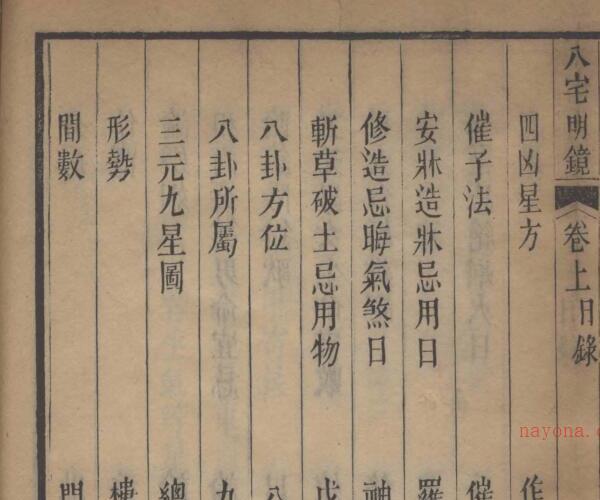 八宅明鏡 卷上目錄
四凶星方
催子法 催
安牀造牀忌用日 羅
修造忌晦氣煞日 神
斬草破土忌用物
八卦方位 八
八卦所屬 九
三元九星圖 總
形勢 樓
間數 門
nayona.